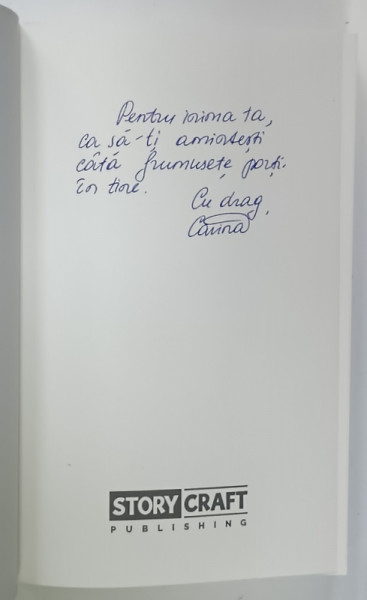 Pentru inima ta,
ca să-ți amintești
câtă frumusețe porți.
în tine.
Cu drag,
STORY CRAFT
PUBLISHING